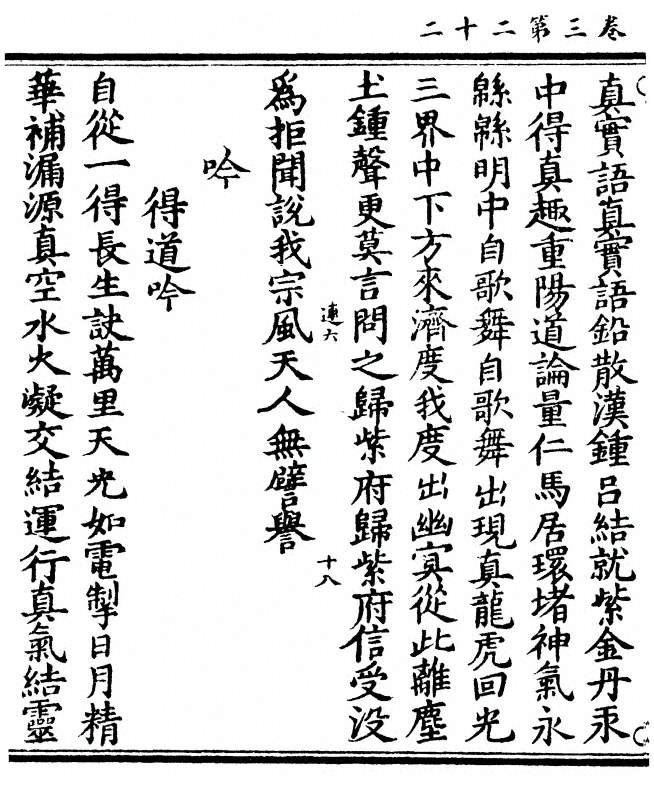 卷三第二十二
真實語真實語鉛散漢鍾呂結就紫金丹汞
中得真趣重陽道論量仁馬居環堵神氣永
緜緜明中自歌舞自歌舞出現真龍虎回光
三界中下方來濟度我度出幽冥從此離塵
土鍾聲更莫言問之歸紫府歸紫府信受没
連六
十八
爲拒聞說我宗風天人無譬譽
吟
得道吟
自從一得長生訣萬里天光如電掣日月精
華補漏源真空水火凝交結運行真氣結靈